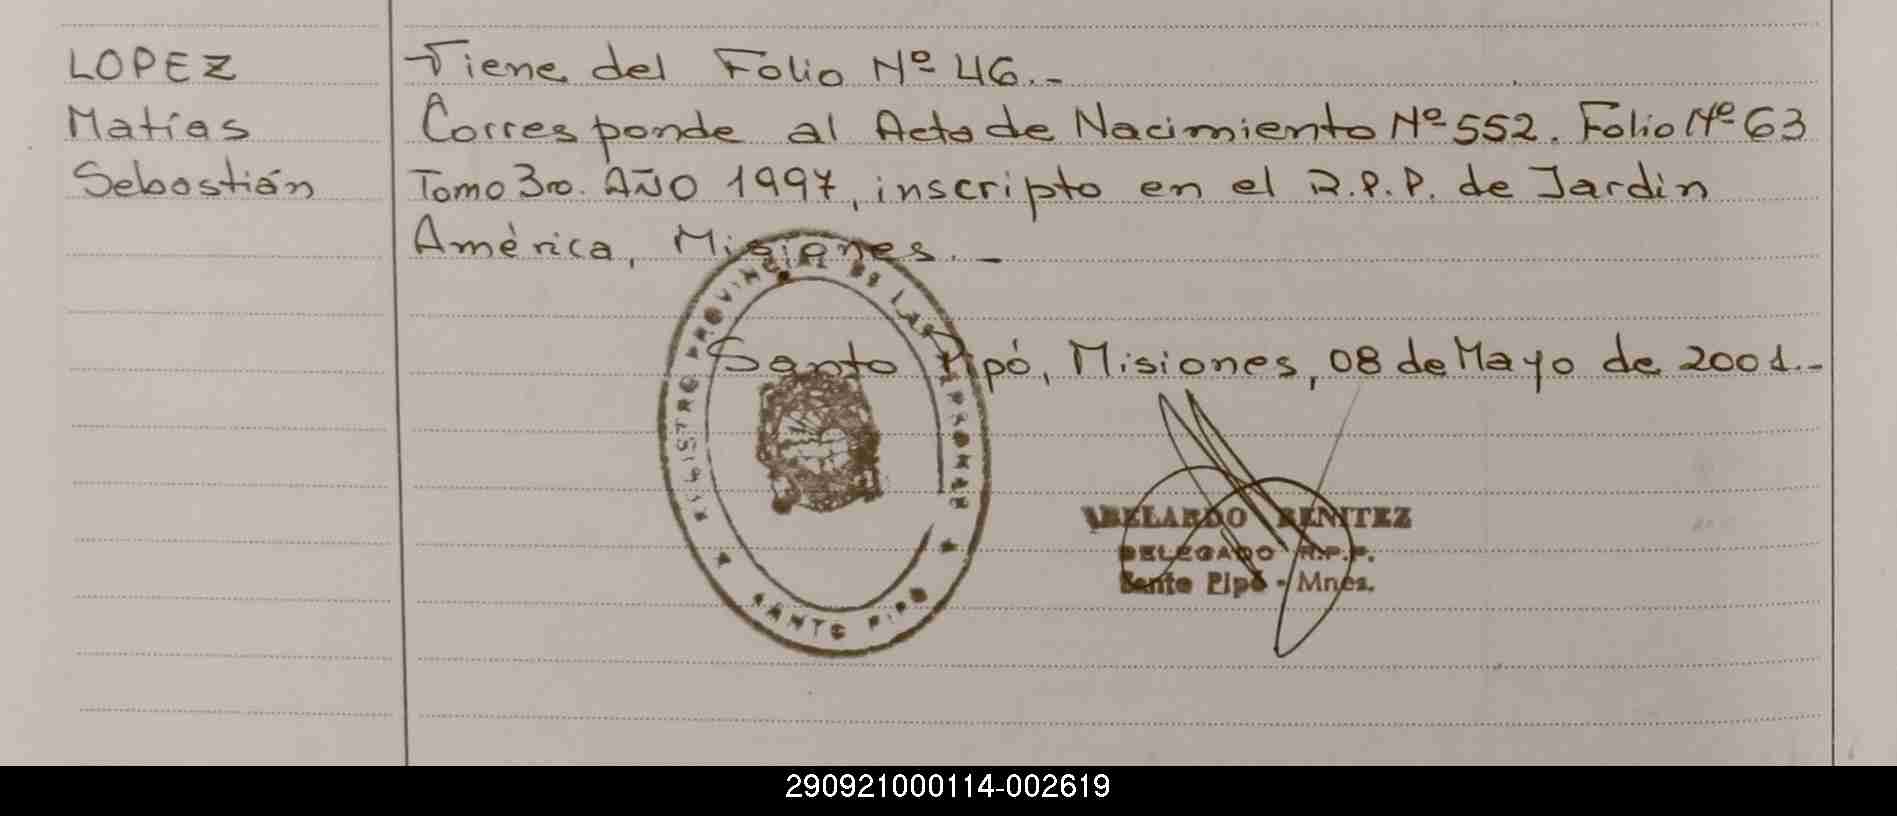 LOPEZ
Matías
Sebastián
Tiene del Folio Nº 46.-
Corresponde al Acta de Nacimiento Nº 552. Folio Nº 63
Tomo 3ro. AÑO 1997, inscripto en el R.P.P. de Jardín
América, Misiones.-
REGISTRO PROVINCIAL DE LAS PERSONAS
SANTO PIPO
Santo Pipó, Misiones, 08 de Mayo de 2001.-
ABELARDO BENITEZ
DELEGADO R.P.P.
Santo Pipó - Mnes.
290921000114-002619